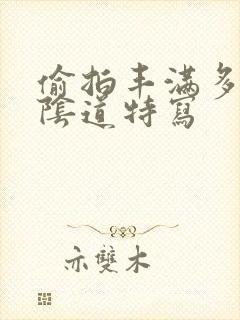 偷拍丰满多
陰道特寫
亦雙木